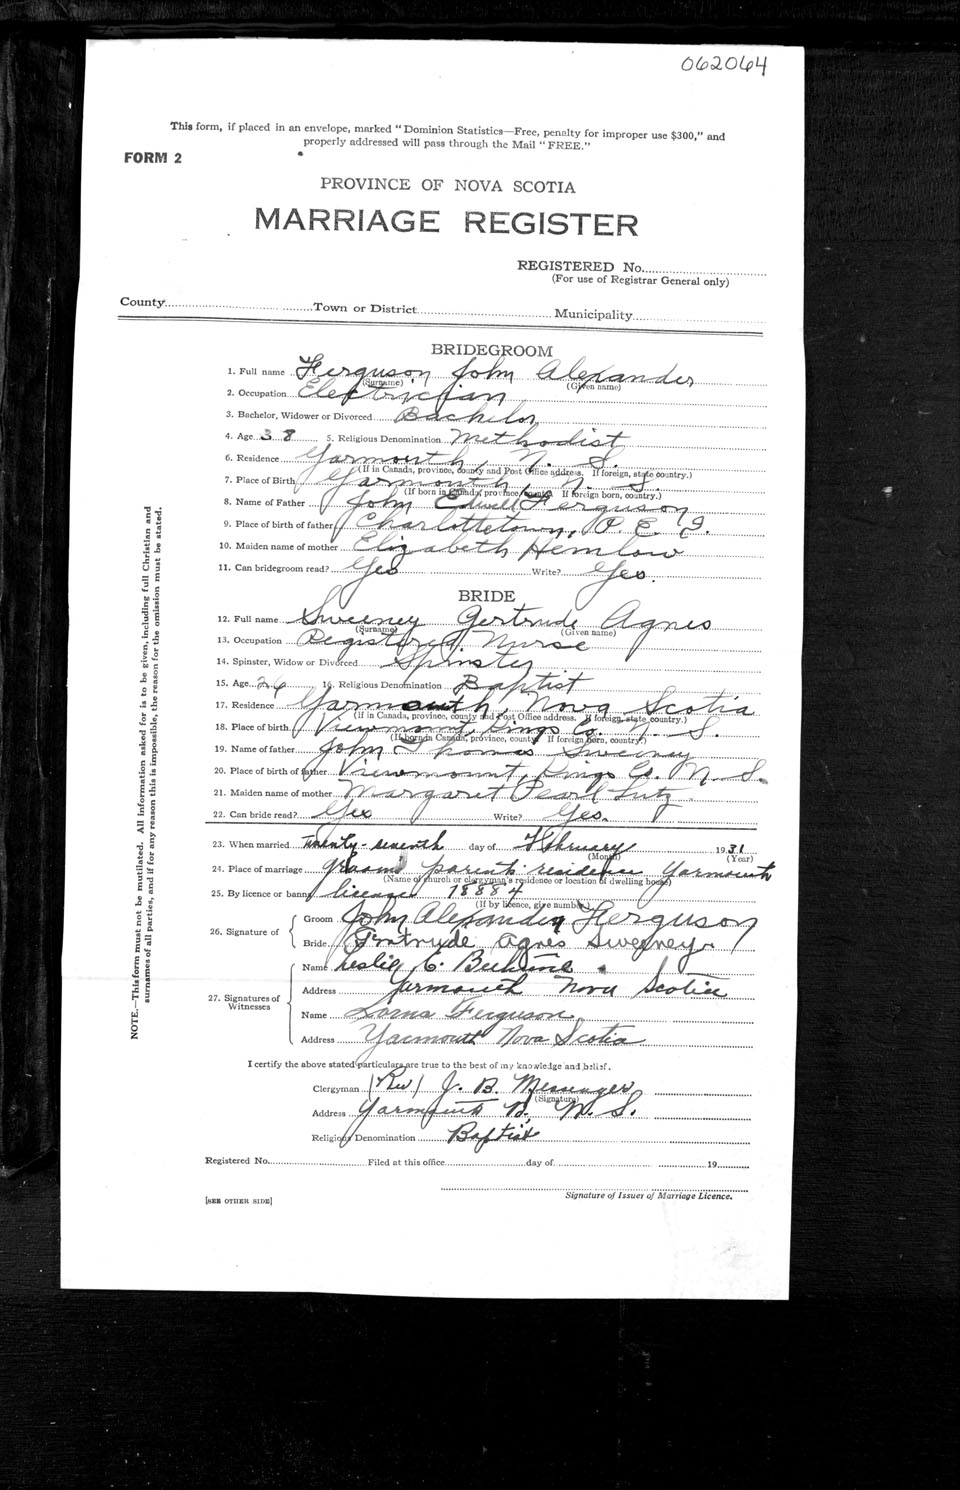 062064
This form, if placed in an envelope, marked "Dominion Statistics—Free, penalty for improper use $300," and
properly addressed will pass through the Mail "FREE."
FORM 2
PROVINCE OF NOVA SCOTIA
MARRIAGE REGISTER
REGISTERED No.
(For use of Registrar General only)
County Town or District Municipality
BRIDEGROOM
1. Full name Ferguson John Alexander
(Surname) (Given name)
2. Occupation Electrician
3. Bachelor, Widower or Divorced Bachelor
4. Age 38 5. Religious Denomination Methodist
6. Residence Yarmouth, N. S.
(If in Canada, province, county and Post Office address. If foreign, state country.)
7. Place of Birth Yarmouth, N. S.
(If born in Canada, province, county. If foreign born, country.)
8. Name of Father John Edwell Ferguson
9. Place of birth of father Charlottetown, P. E. I.
10. Maiden name of mother Elizabeth Hemlow
11. Can bridegroom read? Yes Write? Yes.
BRIDE
12. Full name Sweeney Gertrude Agnes
(Surname) (Given name)
13. Occupation Registered Nurse
14. Spinster, Widow or Divorced Spinster
15. Age 26 16. Religious Denomination Baptist
17. Residence Yarmouth, Nova Scotia
(If in Canada, province, county and Post Office address. If foreign, state country.)
18. Place of birth Viewmount, Kings Co. N. S.
(If born in Canada, province, county. If foreign born, country.)
19. Name of father John Thomas Sweeney
20. Place of birth of father Viewmount, Kings Co. N. S.
21. Maiden name of mother Margaret Pearl Lutz
22. Can bride read? Yes Write? Yes.
23. When married twenty-seventh day of February 1931
(Month) (Year)
24. Place of marriage groom's parents' residence Yarmouth
(Name of church or clergyman's residence or location of dwelling house)
25. By licence or banns license 18884
(If by licence, give number)
26. Signature of Groom John Alexander Ferguson
Bride Gertrude Agnes Sweeney
27. Signatures of Witnesses
Name Leslie E.
Address Yarmouth Nova Scotia
Name Lorna Ferguson
Address Yarmouth Nova Scotia
I certify the above stated particulars are true to the best of my knowledge and belief.
Clergyman (Rev) J. B. Messenger
(Signature)
Address Yarmouth N. S.
Religious Denomination Baptist
Registered No. Filed at this office day of 19
Signature of Issuer of Marriage Licence.
[SEE OTHER SIDE]
NOTE.—This form must not be mutilated. All information asked for is to be given, including full Christian and
surnames of all parties, and if for any reason this is impossible, the reason for the omission must be stated.